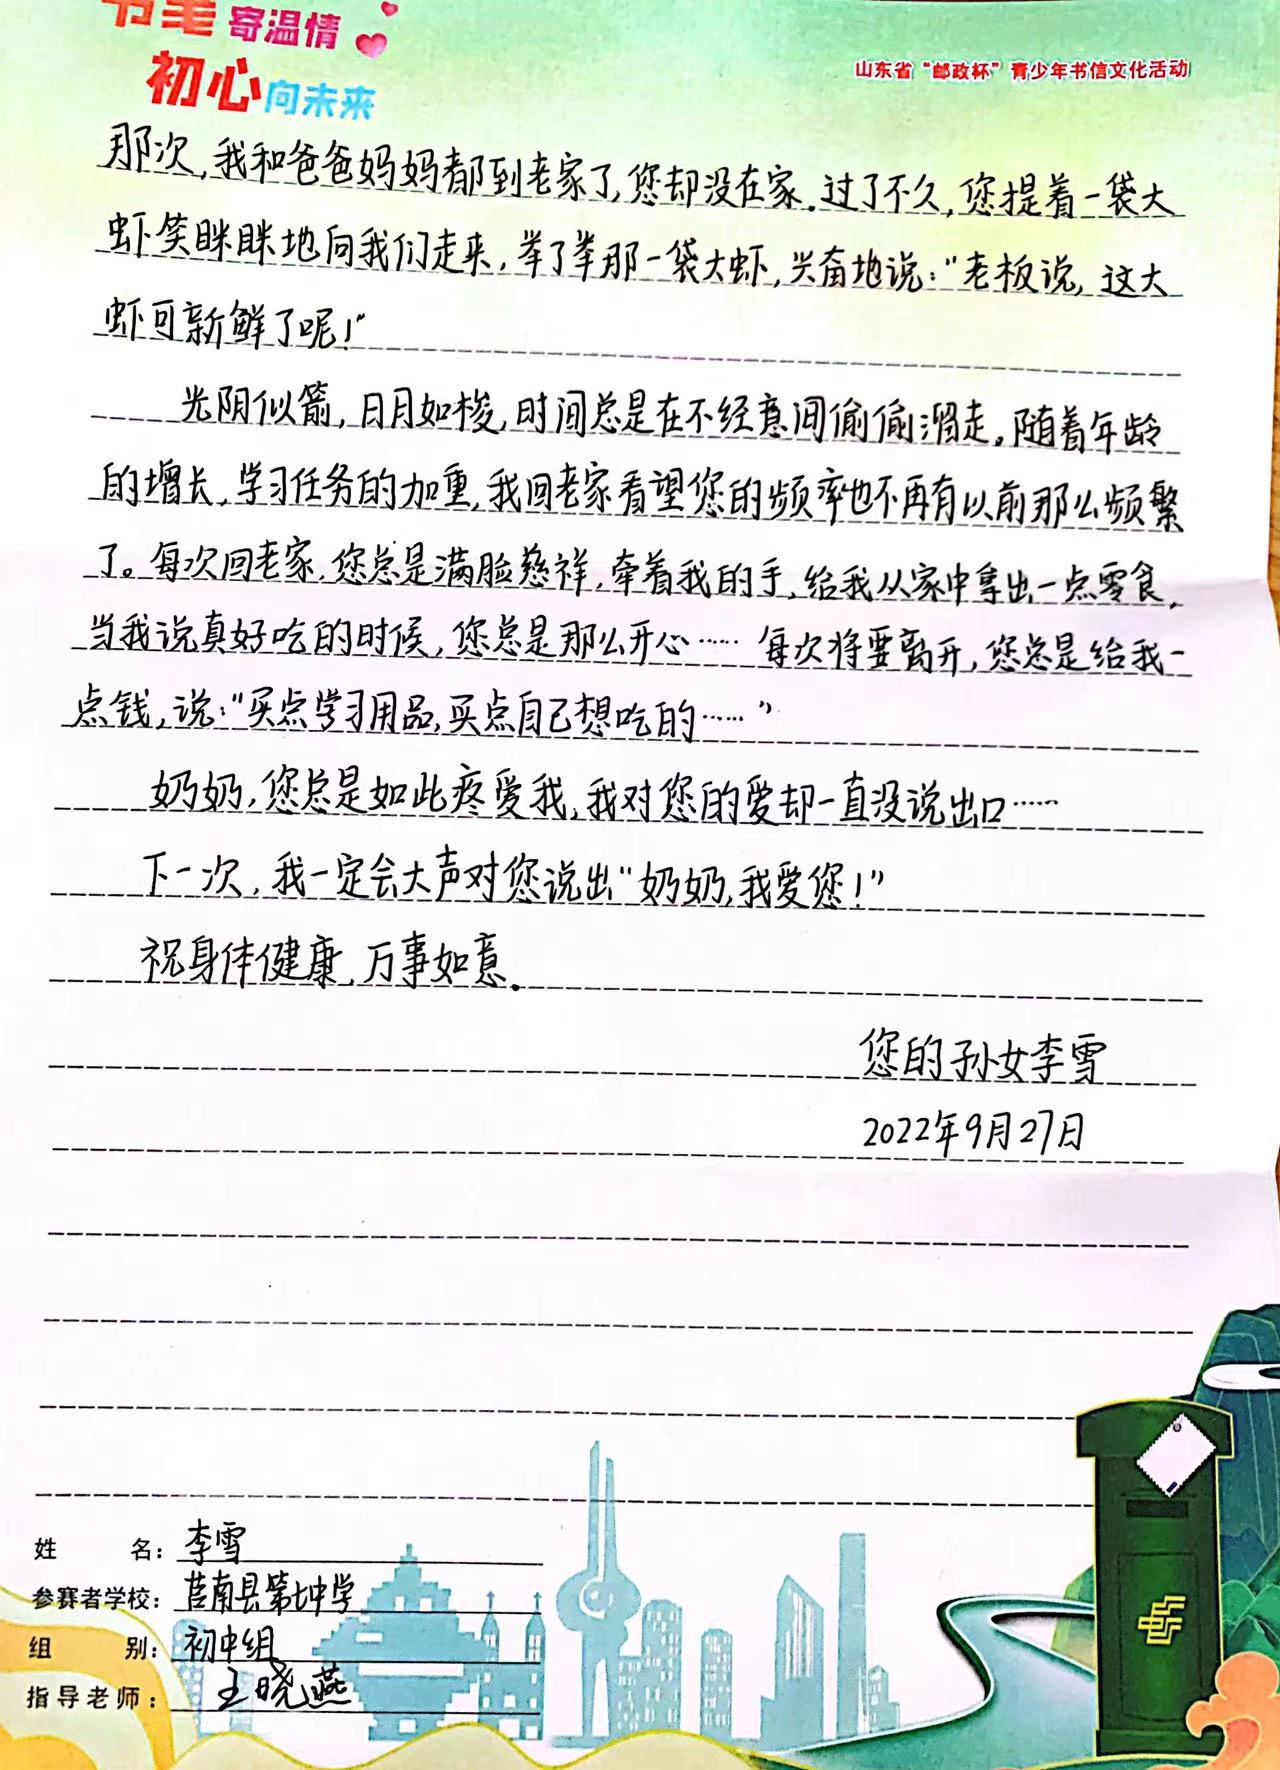 书笔寄温情
初心向未来
山东省“邮政杯”青少年书信文化活动
那次,我和爸爸妈妈都到老家了,您却没在家.过了不久,您提着一袋大
虾笑眯眯地向我们走来,举了举那一袋大虾,兴奋地说:“老板说,这大
虾可新鲜了呢!”
光阴似箭,日月如梭,时间总是在不经意间偷偷滑走。随着年龄
的增长,学习任务的加重,我回老家看望您的频率也不再有以前那么频繁
了。每次回老家,您总是满脸慈祥,牵着我的手,给我从家中拿出一点零食,
当我说真好吃的时候,您总是那么开心…… 每次将要离开,您总是给我一
点钱,说:“买点学习用品,买点自己想吃的……”
奶奶,您总是如此疼爱我,我对您的爱却一直没说出口……
下一次,我一定会大声对您说出“奶奶,我爱您!”
祝身体健康,万事如意.
您的孙女李雪
2022年9月27日
姓 名: 李雪
参赛者学校: 莒南县第七中学
组 别: 初中组
指导老师: 王晓燕